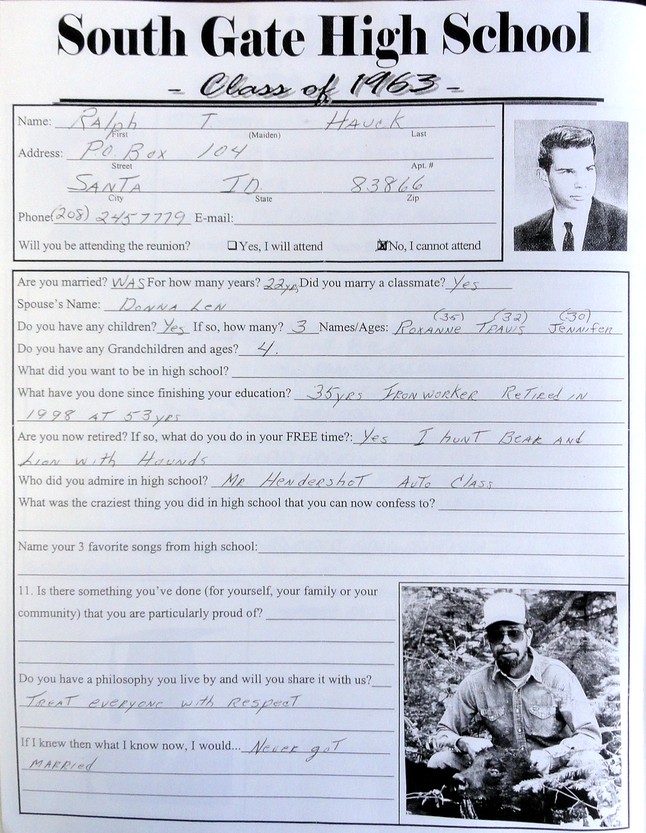 South Gate High School
- Class of 1963 -
Name: Ralph T Hauck
First (Maiden) Last
Address: PO Box 104
Street Apt. #
Santa ID. 83866
City State Zip
Phone (208) 2457779 E-mail:
Will you be attending the reunion? Yes, I will attend No, I cannot attend
Are you married? WAS For how many years? 22yrs Did you marry a classmate? Yes
Spouse's Name: Donna Len
(35) (32) (30)
Do you have any children? Yes If so, how many? 3 Names/Ages: Roxanne Travis Jennifer
Do you have any Grandchildren and ages? 4.
What did you want to be in high school?
What have you done since finishing your education? 35yrs Iron worker Retired in
1998 at 53yrs
Are you now retired? If so, what do you do in your FREE time?: Yes I hunt Bear and
Lion with Hounds
Who did you admire in high school? Mr Hendershot Auto Class
What was the craziest thing you did in high school that you can now confess to?
Name your 3 favorite songs from high school:
11. Is there something you've done (for yourself, your family or your
community) that you are particularly proud of?
Do you have a philosophy you live by and will you share it with us?
Treat everyone with respect
If I knew then what I know now, I would... Never got
married